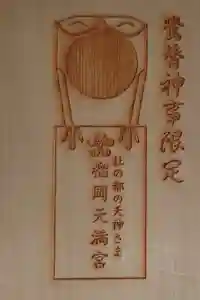 鷽替神事限定
杜の都の天神さま
榴岡天満宮